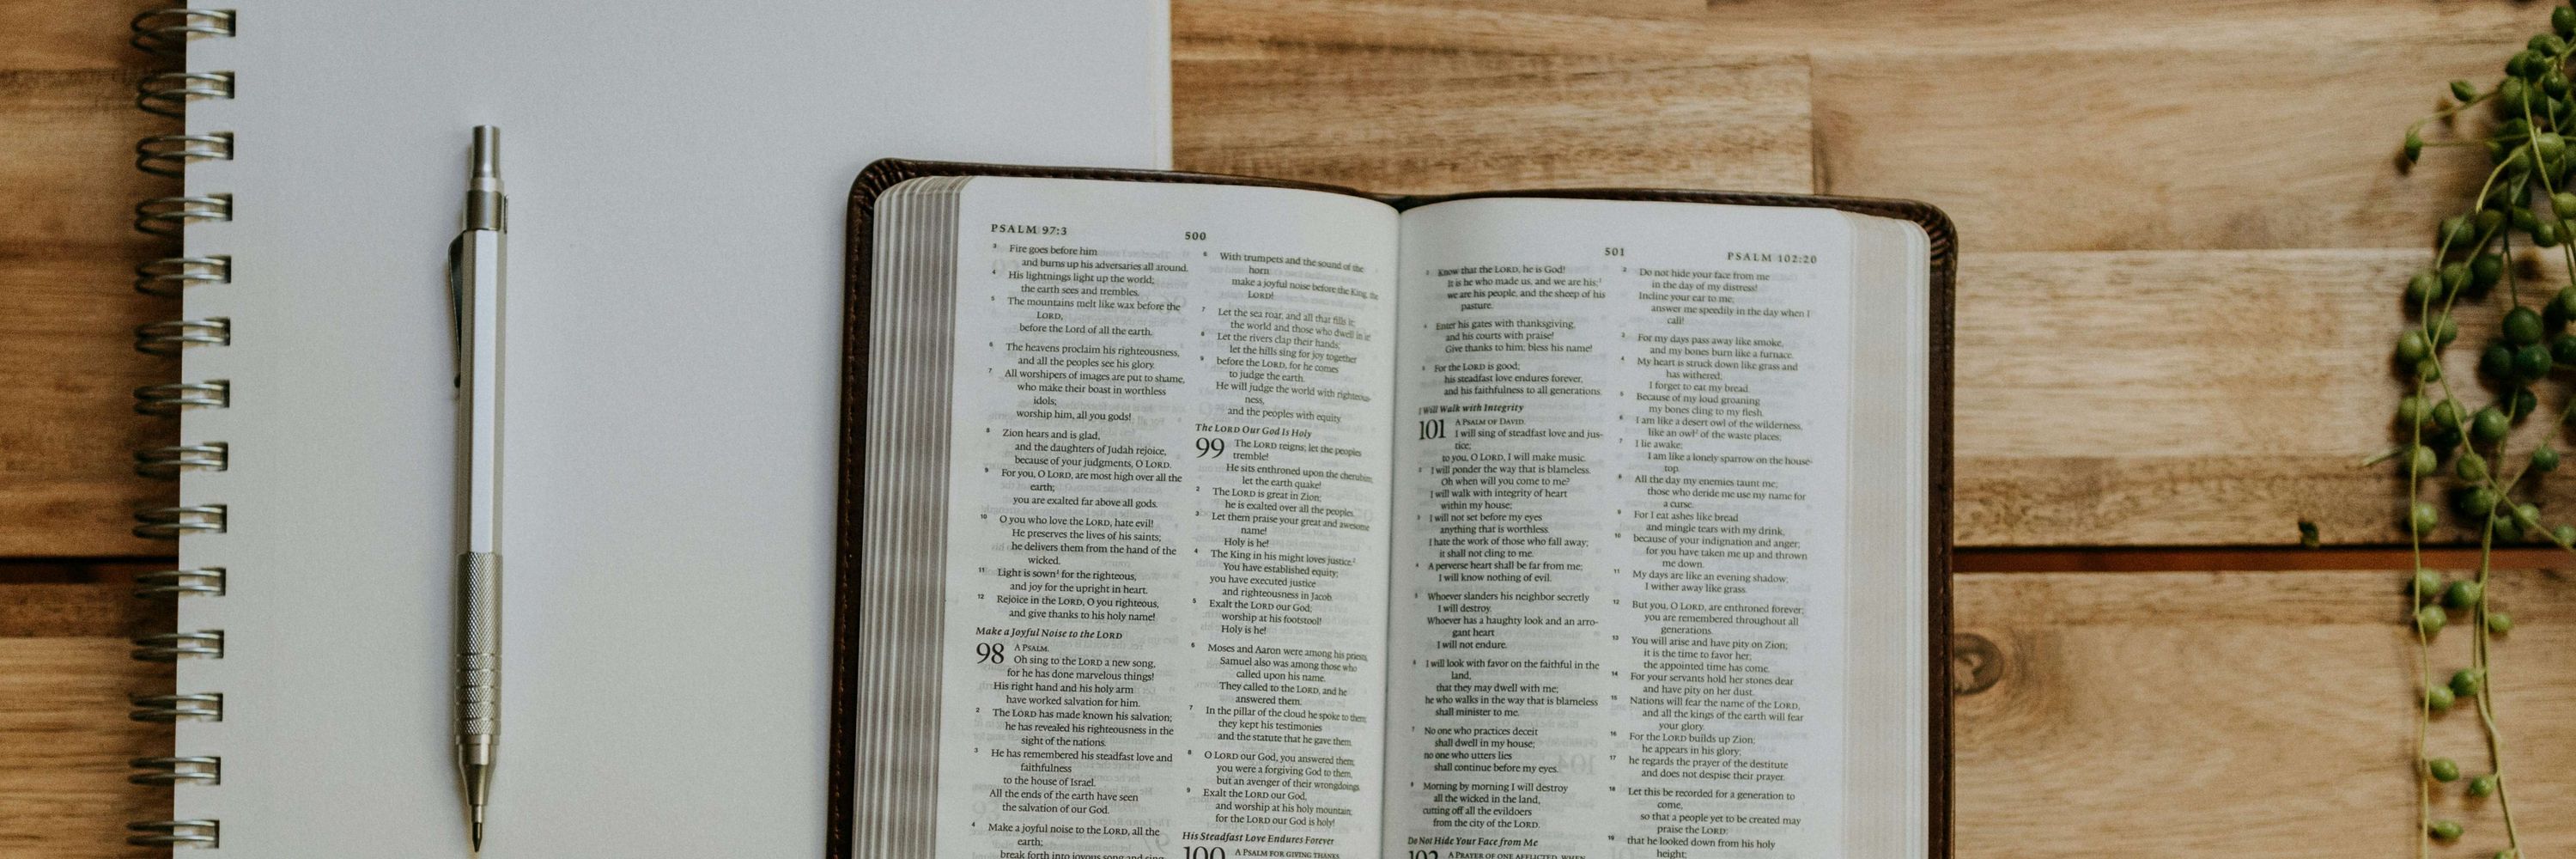 PSALM 97:3
500
3 Fire goes before him
and burns up his adversaries all around.
4 His lightnings light up the world;
the earth sees and trembles.
5 The mountains melt like wax before the
LORD,
before the Lord of all the earth.
6 The heavens proclaim his righteousness,
and all the peoples see his glory.
7 All worshipers of images are put to shame,
who make their boast in worthless
idols;
worship him, all you gods!
8 Zion hears and is glad,
and the daughters of Judah rejoice,
because of your judgments, O LORD.
9 For you, O LORD, are most high over all the
earth;
you are exalted far above all gods.
10 O you who love the LORD, hate evil!
He preserves the lives of his saints;
he delivers them from the hand of the
wicked.
11 Light is sown¹ for the righteous,
and joy for the upright in heart.
12 Rejoice in the LORD, O you righteous,
and give thanks to his holy name!
Make a Joyful Noise to the LORD
98 A PSALM.
Oh sing to the LORD a new song,
for he has done marvelous things!
His right hand and his holy arm
have worked salvation for him.
2 The LORD has made known his salvation;
he has revealed his righteousness in the
sight of the nations.
3 He has remembered his steadfast love and
faithfulness
to the house of Israel.
All the ends of the earth have seen
the salvation of our God.
4 Make a joyful noise to the LORD, all the
earth;
break forth into joyous song and sing
6 With trumpets and the sound of the
horn
make a joyful noise before the King, the
LORD!
7 Let the sea roar, and all that fills it;
the world and those who dwell in it!
8 Let the rivers clap their hands;
let the hills sing for joy together
9 before the LORD, for he comes
to judge the earth.
He will judge the world with righteous-
ness,
and the peoples with equity.
The LORD Our God Is Holy
99 The LORD reigns; let the peoples
tremble!
He sits enthroned upon the cherubim;
let the earth quake!
2 The LORD is great in Zion;
he is exalted over all the peoples.
3 Let them praise your great and awesome
name!
Holy is he!
4 The King in his might loves justice.²
You have established equity;
you have executed justice
and righteousness in Jacob
5 Exalt the LORD our God;
worship at his footstool!
Holy is he!
6 Moses and Aaron were among his priests,
Samuel also was among those who
called upon his name.
They called to the LORD, and he
answered them.
7 In the pillar of the cloud he spoke to them;
they kept his testimonies
and the statute that he gave them.
8 O LORD our God, you answered them;
you were a forgiving God to them,
but an avenger of their wrongdoings.
9 Exalt the LORD our God,
and worship at his holy mountain;
for the LORD our God is holy!
His Steadfast Love Endures Forever
100 A PSALM FOR GIVING THANKS.
501
PSALM 102:20
3 Know that the LORD, he is God!
It is he who made us, and we are his;¹
we are his people, and the sheep of his
pasture.
4 Enter his gates with thanksgiving,
and his courts with praise!
Give thanks to him; bless his name!
5 For the LORD is good;
his steadfast love endures forever,
and his faithfulness to all generations.
I Will Walk with Integrity
101 A PSALM OF DAVID.
I will sing of steadfast love and jus-
tice;
to you, O LORD, I will make music.
2 I will ponder the way that is blameless.
Oh when will you come to me?
I will walk with integrity of heart
within my house;
3 I will not set before my eyes
anything that is worthless.
I hate the work of those who fall away;
it shall not cling to me.
4 A perverse heart shall be far from me;
I will know nothing of evil.
5 Whoever slanders his neighbor secretly
I will destroy.
Whoever has a haughty look and an arro-
gant heart
I will not endure.
6 I will look with favor on the faithful in the
land,
that they may dwell with me;
he who walks in the way that is blameless
shall minister to me.
7 No one who practices deceit
shall dwell in my house;
no one who utters lies
shall continue before my eyes.
8 Morning by morning I will destroy
all the wicked in the land,
cutting off all the evildoers
from the city of the LORD.
Do Not Hide Your Face from Me
102 A PRAYER OF ONE AFFLICTED, WHEN
2 Do not hide your face from me
in the day of my distress!
Incline your ear to me;
answer me speedily in the day when I
call!
3 For my days pass away like smoke,
and my bones burn like a furnace.
4 My heart is struck down like grass and
has withered;
I forget to eat my bread.
5 Because of my loud groaning
my bones cling to my flesh.
6 I am like a desert owl of the wilderness,
like an owl² of the waste places;
7 I lie awake;
I am like a lonely sparrow on the house-
top.
8 All the day my enemies taunt me;
those who deride me use my name for
a curse.
9 For I eat ashes like bread
and mingle tears with my drink,
10 because of your indignation and anger;
for you have taken me up and thrown
me down.
11 My days are like an evening shadow;
I wither away like grass.
12 But you, O LORD, are enthroned forever;
you are remembered throughout all
generations.
13 You will arise and have pity on Zion;
it is the time to favor her;
the appointed time has come.
14 For your servants hold her stones dear
and have pity on her dust.
15 Nations will fear the name of the LORD,
and all the kings of the earth will fear
your glory.
16 For the LORD builds up Zion;
he appears in his glory;
17 he regards the prayer of the destitute
and does not despise their prayer.
18 Let this be recorded for a generation to
come,
so that a people yet to be created may
praise the LORD:
19 that he looked down from his holy
height;